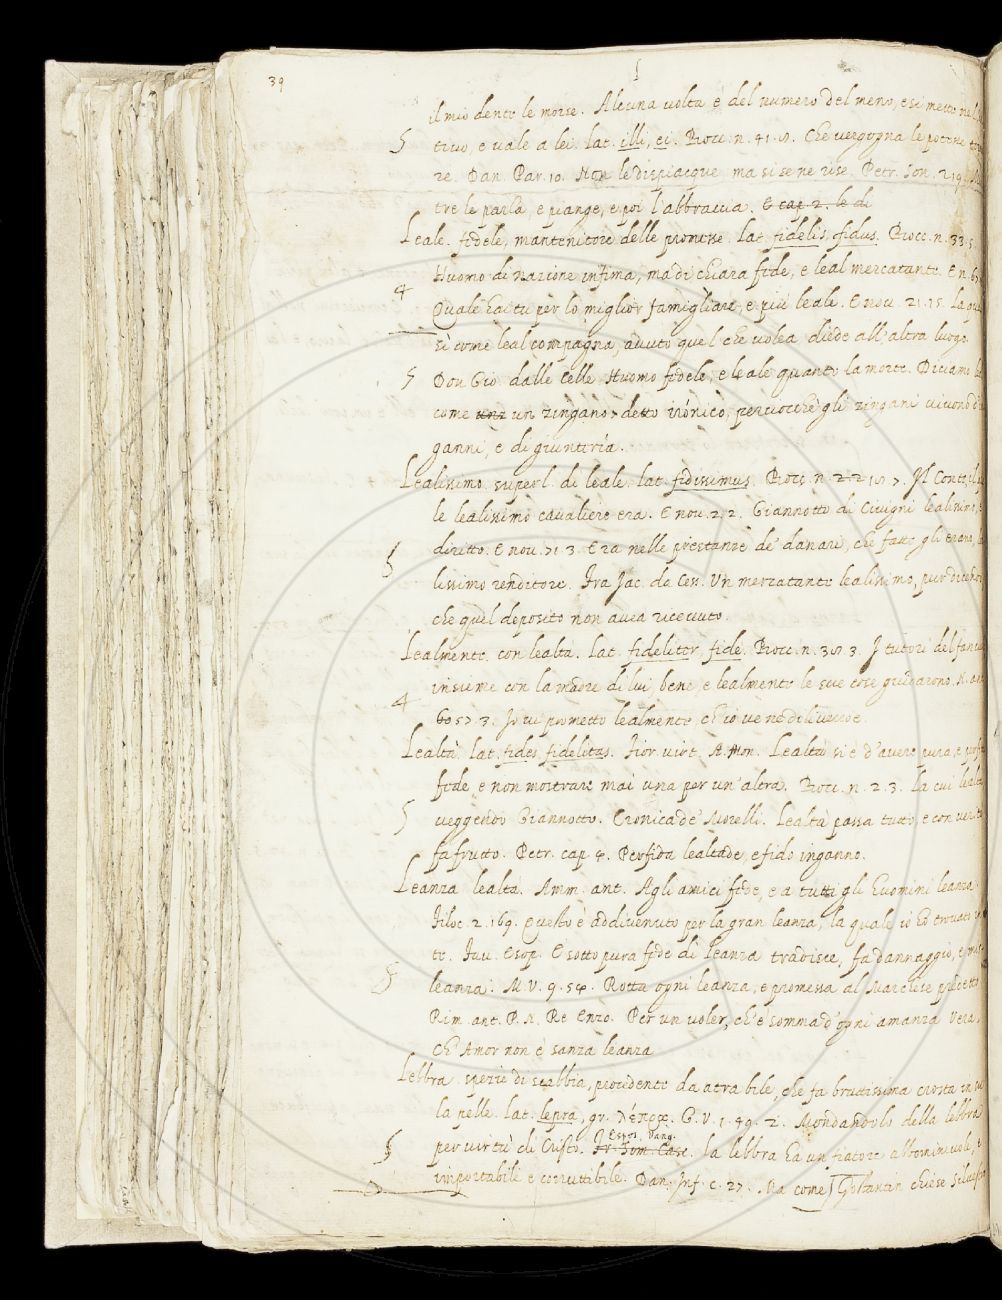 39
il mio dente le morse. Alcuna volta è del numero del meno, e si mette nel
tivo, e vale a lei. Lat. illi, ei. Bocc. n. 41.
re. Dan. Par. 10. Non le dispiacque ma si se ne rise. Petr. Son. 219.
tre le parla, e piange, e poi l'abbraccia. E cap. 2. le di
Leale. fedele, mantenitore delle promesse. Lat. fidelis, fidus. Bocc. n. 33.
Huomo di nazione infima, ma di chiara fede, e leal mercatante. E n.
Quale hai tu per lo miglior famigliare, e più leale. E nov. 21. 15. La
sì come leal compagna, avuto quel che volea diede all'altra luogo.
Don Gio. dalle Celle Huomo fedele, e leale quanto la morte. Diciamo
come un zingano, detto irónico, perciocchè gli zingani vivono
ganni, e di giunteria.
Lealissimo. superl. di leale. Lat. fidissimus. Bocc. n. Il Conte, il
le lealissimo cavaliere era. E nov. 22. Giannotto di Civignì lealissimo,
diritto. E nov. 71. 3. Era nelle prestanze de' danari, che fatte gli erano,
lissimo renditore. Fra Jac. da Ces. Un mercatante lealissimo, pur dicendo
che quel deposito non avea ricevuto.
Lealmente. con lealtà. Lat. fideliter, fide. Bocc. n. I tutori del
insieme con la madre di lui, bene, e lealmente le sue cose guidarono. N. ant.
57. 3. Io vi prometto lealmente, ch'io
Lealtà. Lat. fides, fidelitas. Fior. virt. A. Mon. Lealtà si è d'avere pura, e
fede e non mostrare mai una per un'altra. Bocc. n. 2. 3. La cui lealtà
veggendo Giannotto. Cronica de' Morelli. Lealtà passa tutto, e con verità
fa frutto. Petr. cap. Perfida lealtade, e fido inganno.
Leanza. lealtà. Amm. ant. Agli amici fede, e a tutti gli huomini leanza.
Filoc. 2. 169. Questo è addivenuto per la gran leanza, la quale io ho trovato
te. Fav. Esop. E sotto pura fede di leanza tradisce, fa dannaggio, e
leanza. M. V. 9. Rotta ogni leanza, e promessa al Marchese
Rim. ant. P. N. Re Enzo. Per un voler, ch'è somma d'ogni amanza Vera,
Ch'Amor non è sanza leanza
Lebbra. spezie di scabbia, procedente da atra bile, che fa bruttissima crosta in
la pelle. Lat. lepra, gr. λέπρα. G. V. 1. 59. 2. Mondandolo della lebbra
per virtù di Cristo. Espos. Vang. La lebbra ha un fiatore abbominevole,
importabile e corruttibile. Dan. Inf. c. 27. Ma come Gostantin chiese